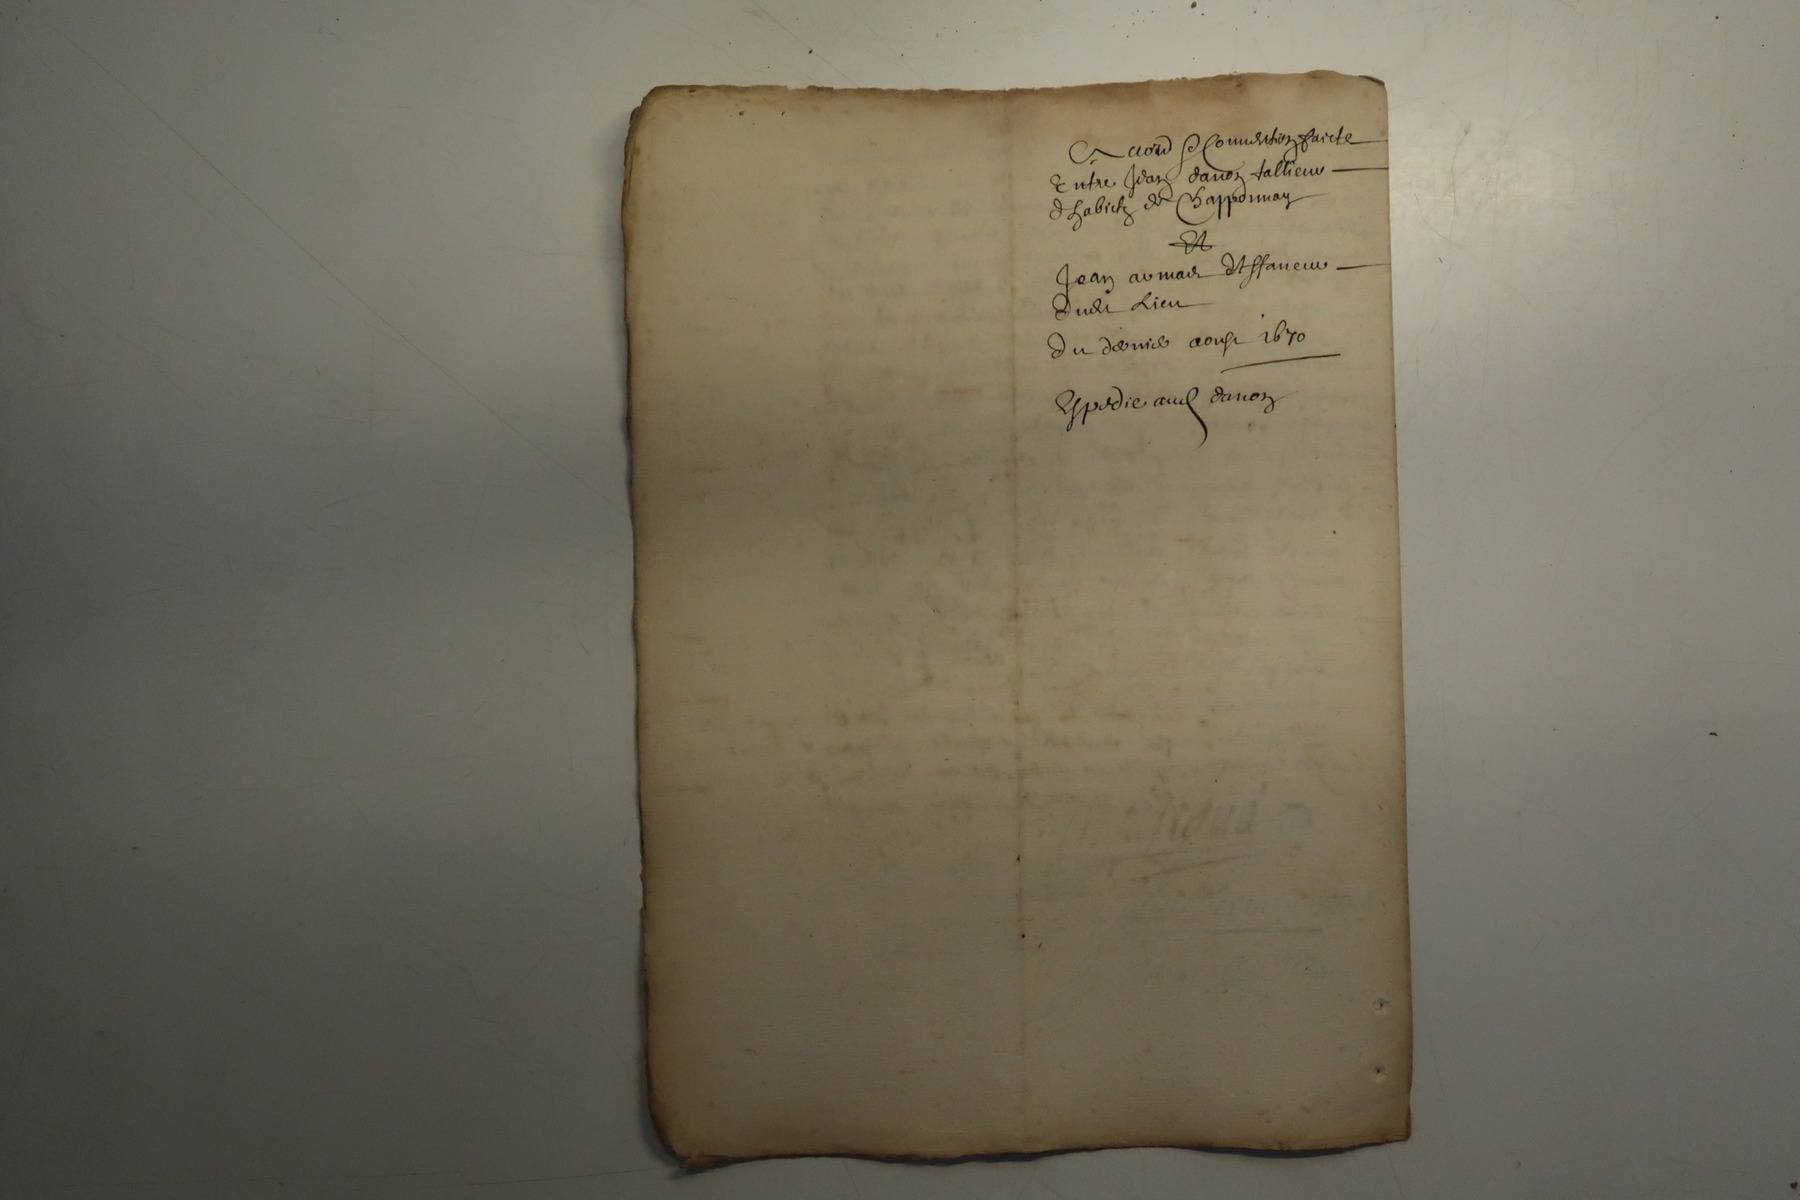 Accord & Convention faicte
Entre Jean danon tallieur
d'habictz de Chapponnay
Et
Jean armand
dudit Lieu
du dernier aoust 1670
Expedie aud danon